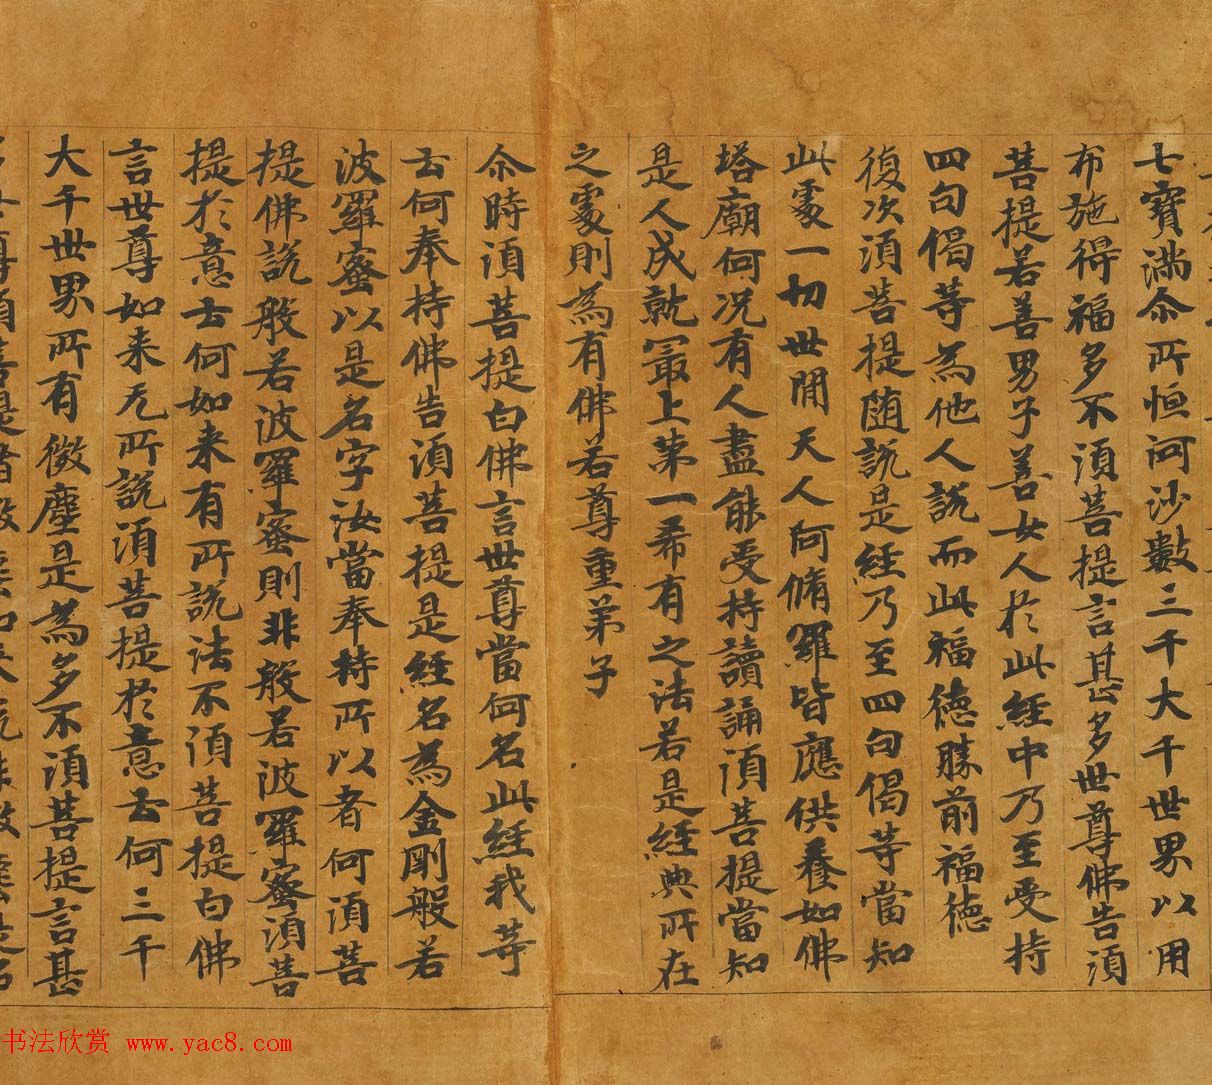 七寶滿尒所恒河沙數三千大千世界以用
布施得福多不湏菩提言甚多世尊佛告湏
菩提若善男子善女人於此經中乃至受持
四句偈等為他人說而此福德勝前福德
復次湏菩提随說是經乃至四句偈等當知
此處一切世間天人阿脩羅皆應供養如佛
塔廟何况有人盡能受持讀誦湏菩提當知
是人成就冣上苐一希有之法若是經典所在
之處則為有佛若尊重弟子
尒時湏菩提白佛言世尊當何名此經我等
云何奉持佛告湏菩提是經名為金剛般若
波羅蜜以是名字汝當奉持所以者何湏菩
提佛說般若波羅蜜則非般若波羅蜜湏菩
提於意云何如来有所說法不湏菩提白佛
言世尊如来无所說湏菩提於意云何三千
大千世界所有微塵是為多不湏菩提言甚
书法欣赏 www.yac8.com